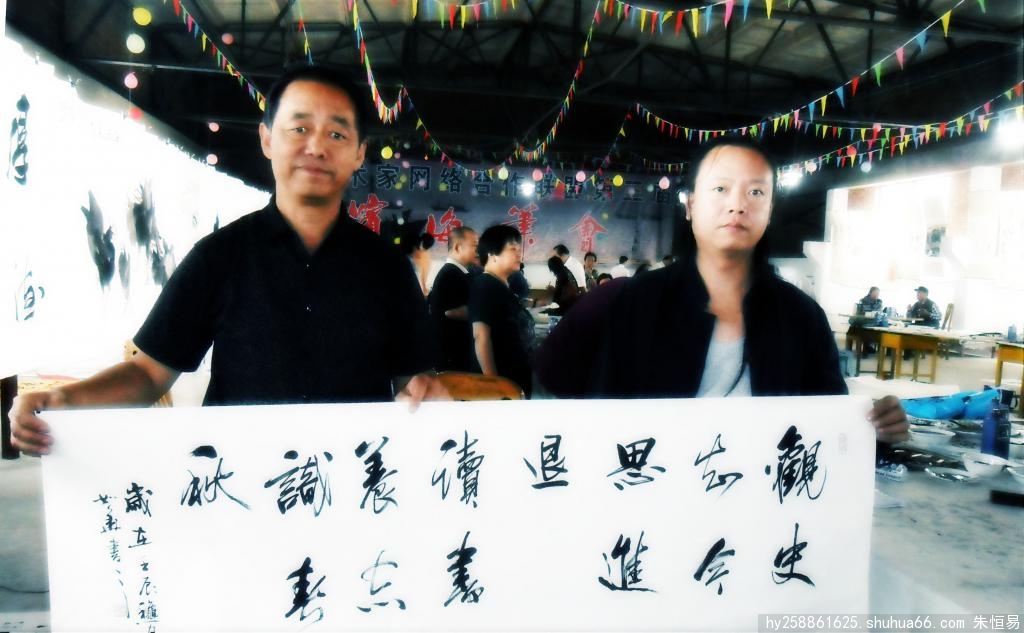 术家网络合作联盟第二届
濱海筆會
觀史
知今
思進
退
讀書
養志
識春
秋
歲在壬辰
hy258861625.shuhua66.com 朱恒易